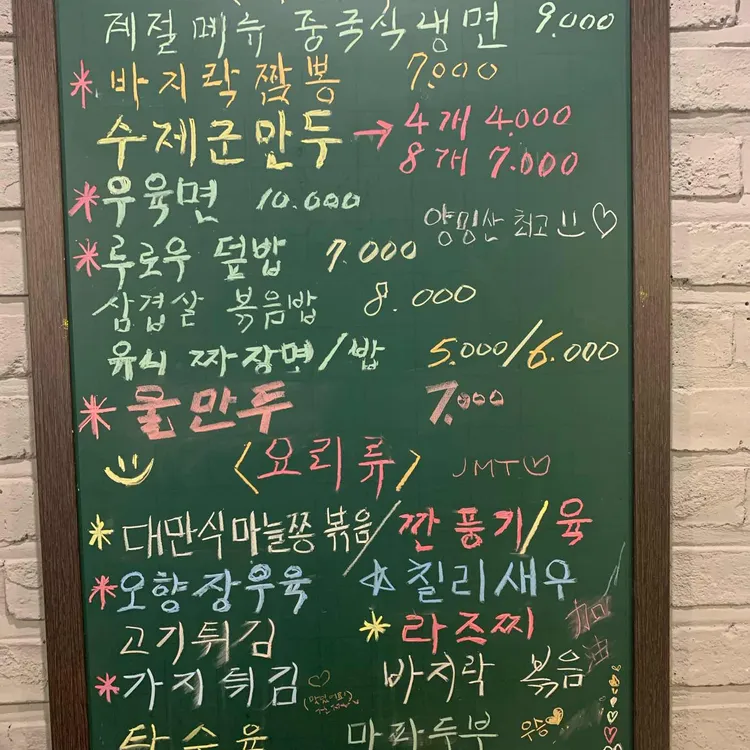 계절메뉴 중국식냉면 9.000
* 바지락짬뽕 7.000
수제군만두 → 4개 4.000
8개 7.000
* 우육면 10.000
양밍산 최고
* 루로우 덮밥 7.000
삼겹살 볶음밥 8.000
유시 짜장면/밥 5.000/6.000
* 물만두 7.000
<요리류> JMT
* 대만식마늘쫑볶음/깐풍기/육
* 오향장우육 ☆칠리새우
고기튀김 * 라즈찌
* 가지튀김 바지락 볶음
加油
탕수육 마파두부